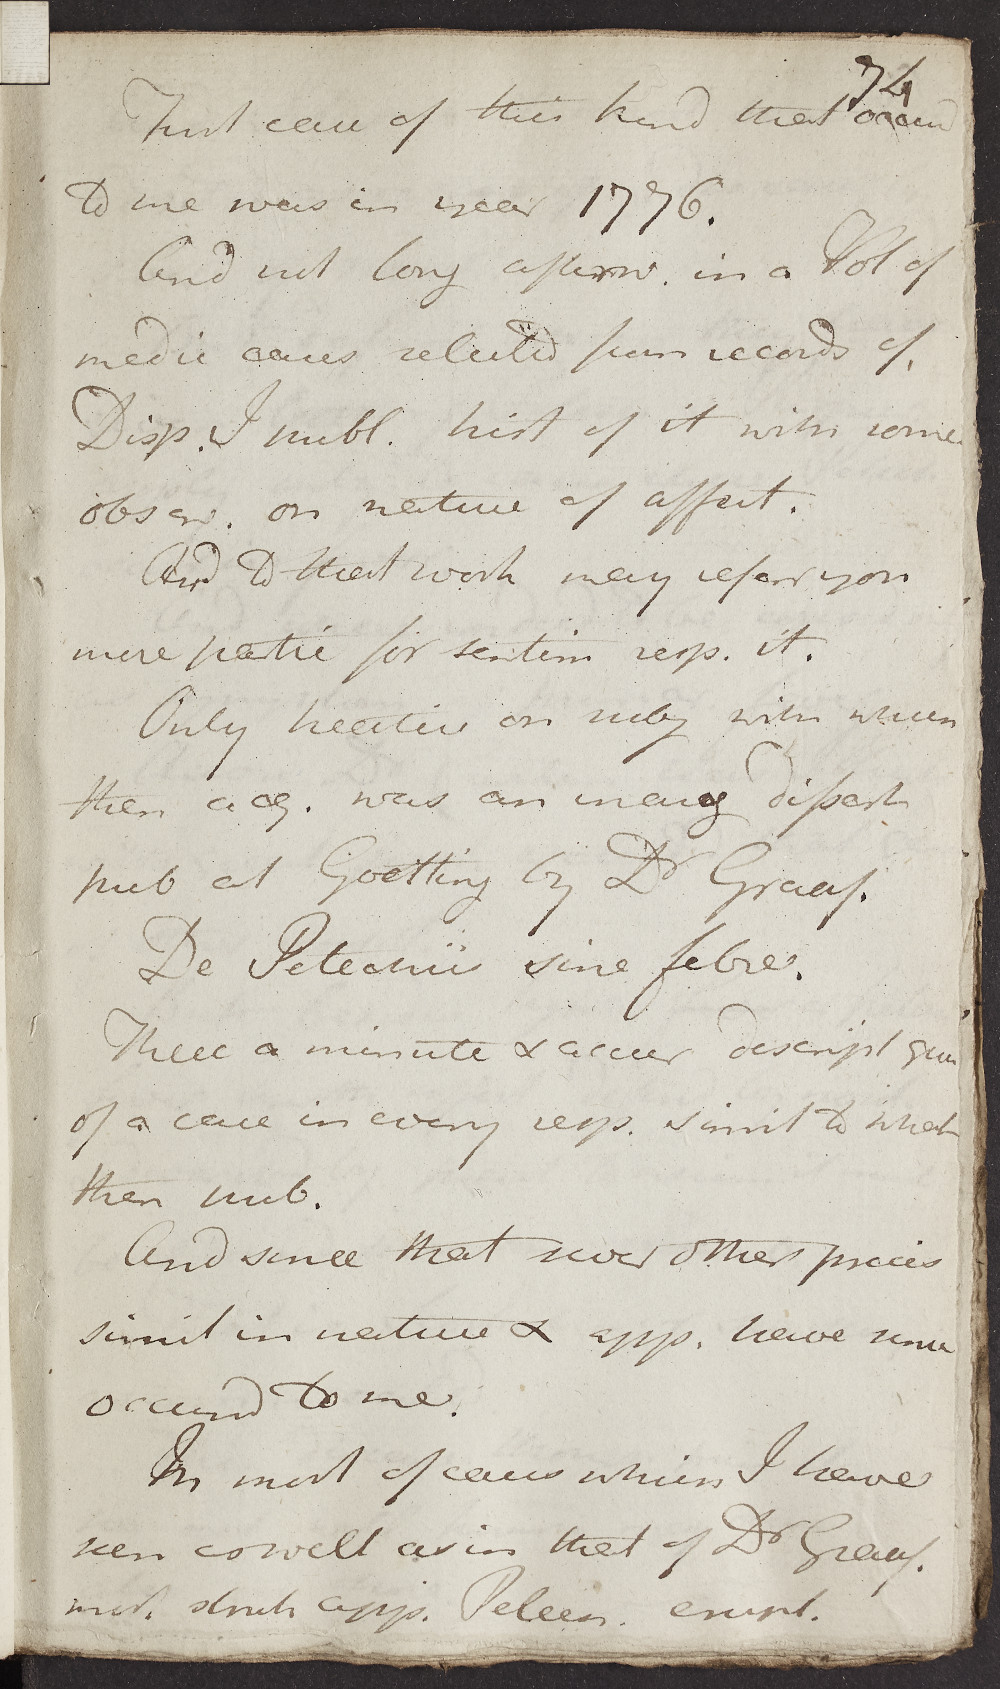 74
First case of this kind that occurd
to me was in year 1776.
And not long afterw. in a Vol of
medic cases selected from records of
Disp. I publ. hist of it with some
observ. on nature of affect.
And to that work may refer you
more partic for sentim resp. it.
Only treatise on subj with which
then acq. was an inaug dissert
pub at Goetting by Dr Graaf.
De Petechiis sine febre.
There a minute & accur descript given
of a case in every resp. simil to what
then pub.
And since that sever others precis
simil in nature & app. have
occurrd to me.
In most of cases which I have
seen as well as in that of Dr Graaf.
most. strik app. Petech. erupt.